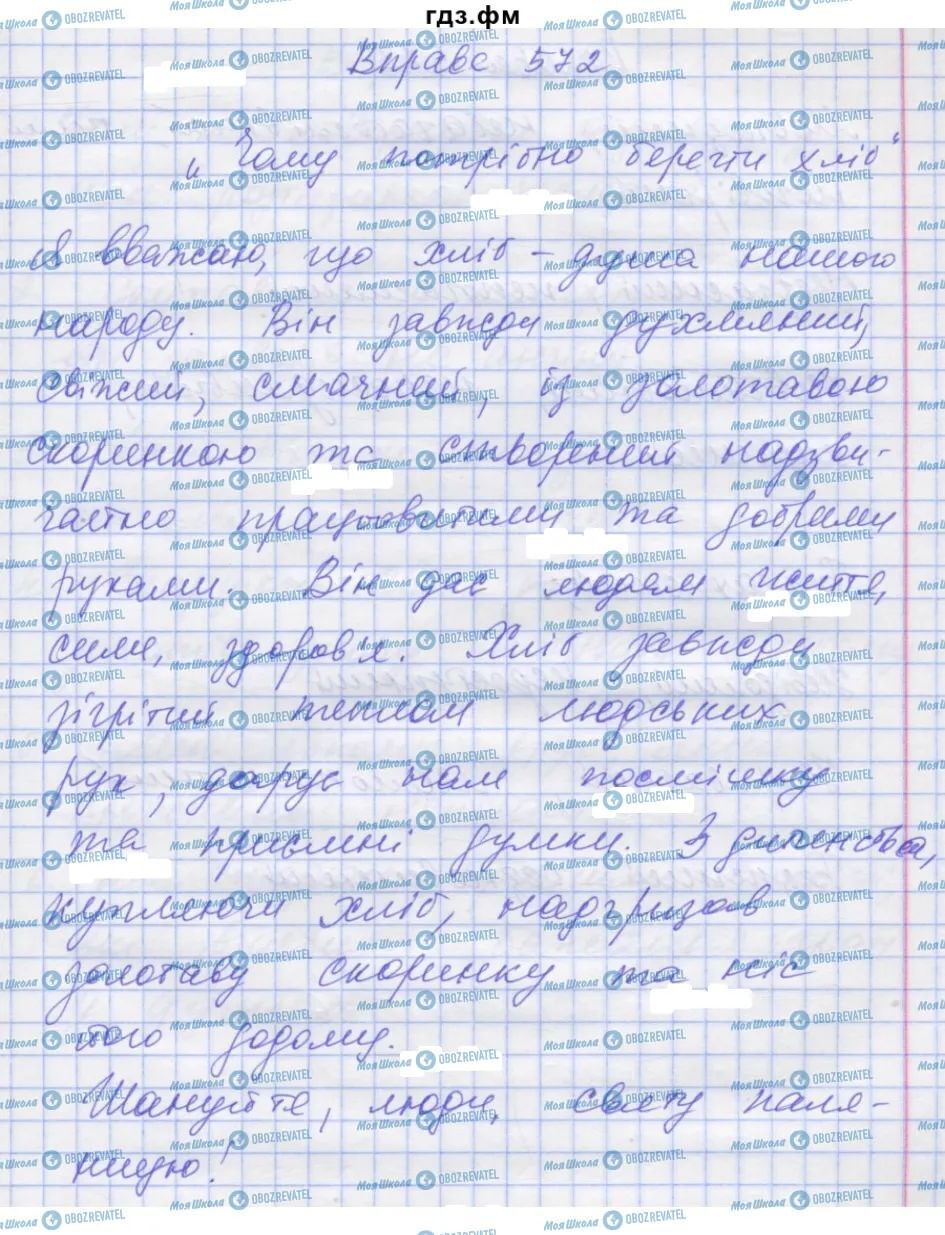 гдз.фм
Вправа 572
„Чому потрібно берегти хліб"
Я вважаю, що хліб – душа нашого
народу. Він завжди духмяний,
свіжий, смачний, із золотавою
скоринкою та створений надзви-
чайно працьовитими та добрими
руками. Він дає людям життя,
сили, здоров'я. Хліб завжди
зігрітий теплом людських
рук, дарує нам посмішку
та приємні думки. З дитинства,
купляючи хліб, надгризав
золотаву скоринку та ніс
його додому.
Шануйте, люди, святу паля-
ницю!
МояШкола OBOZREVATEL